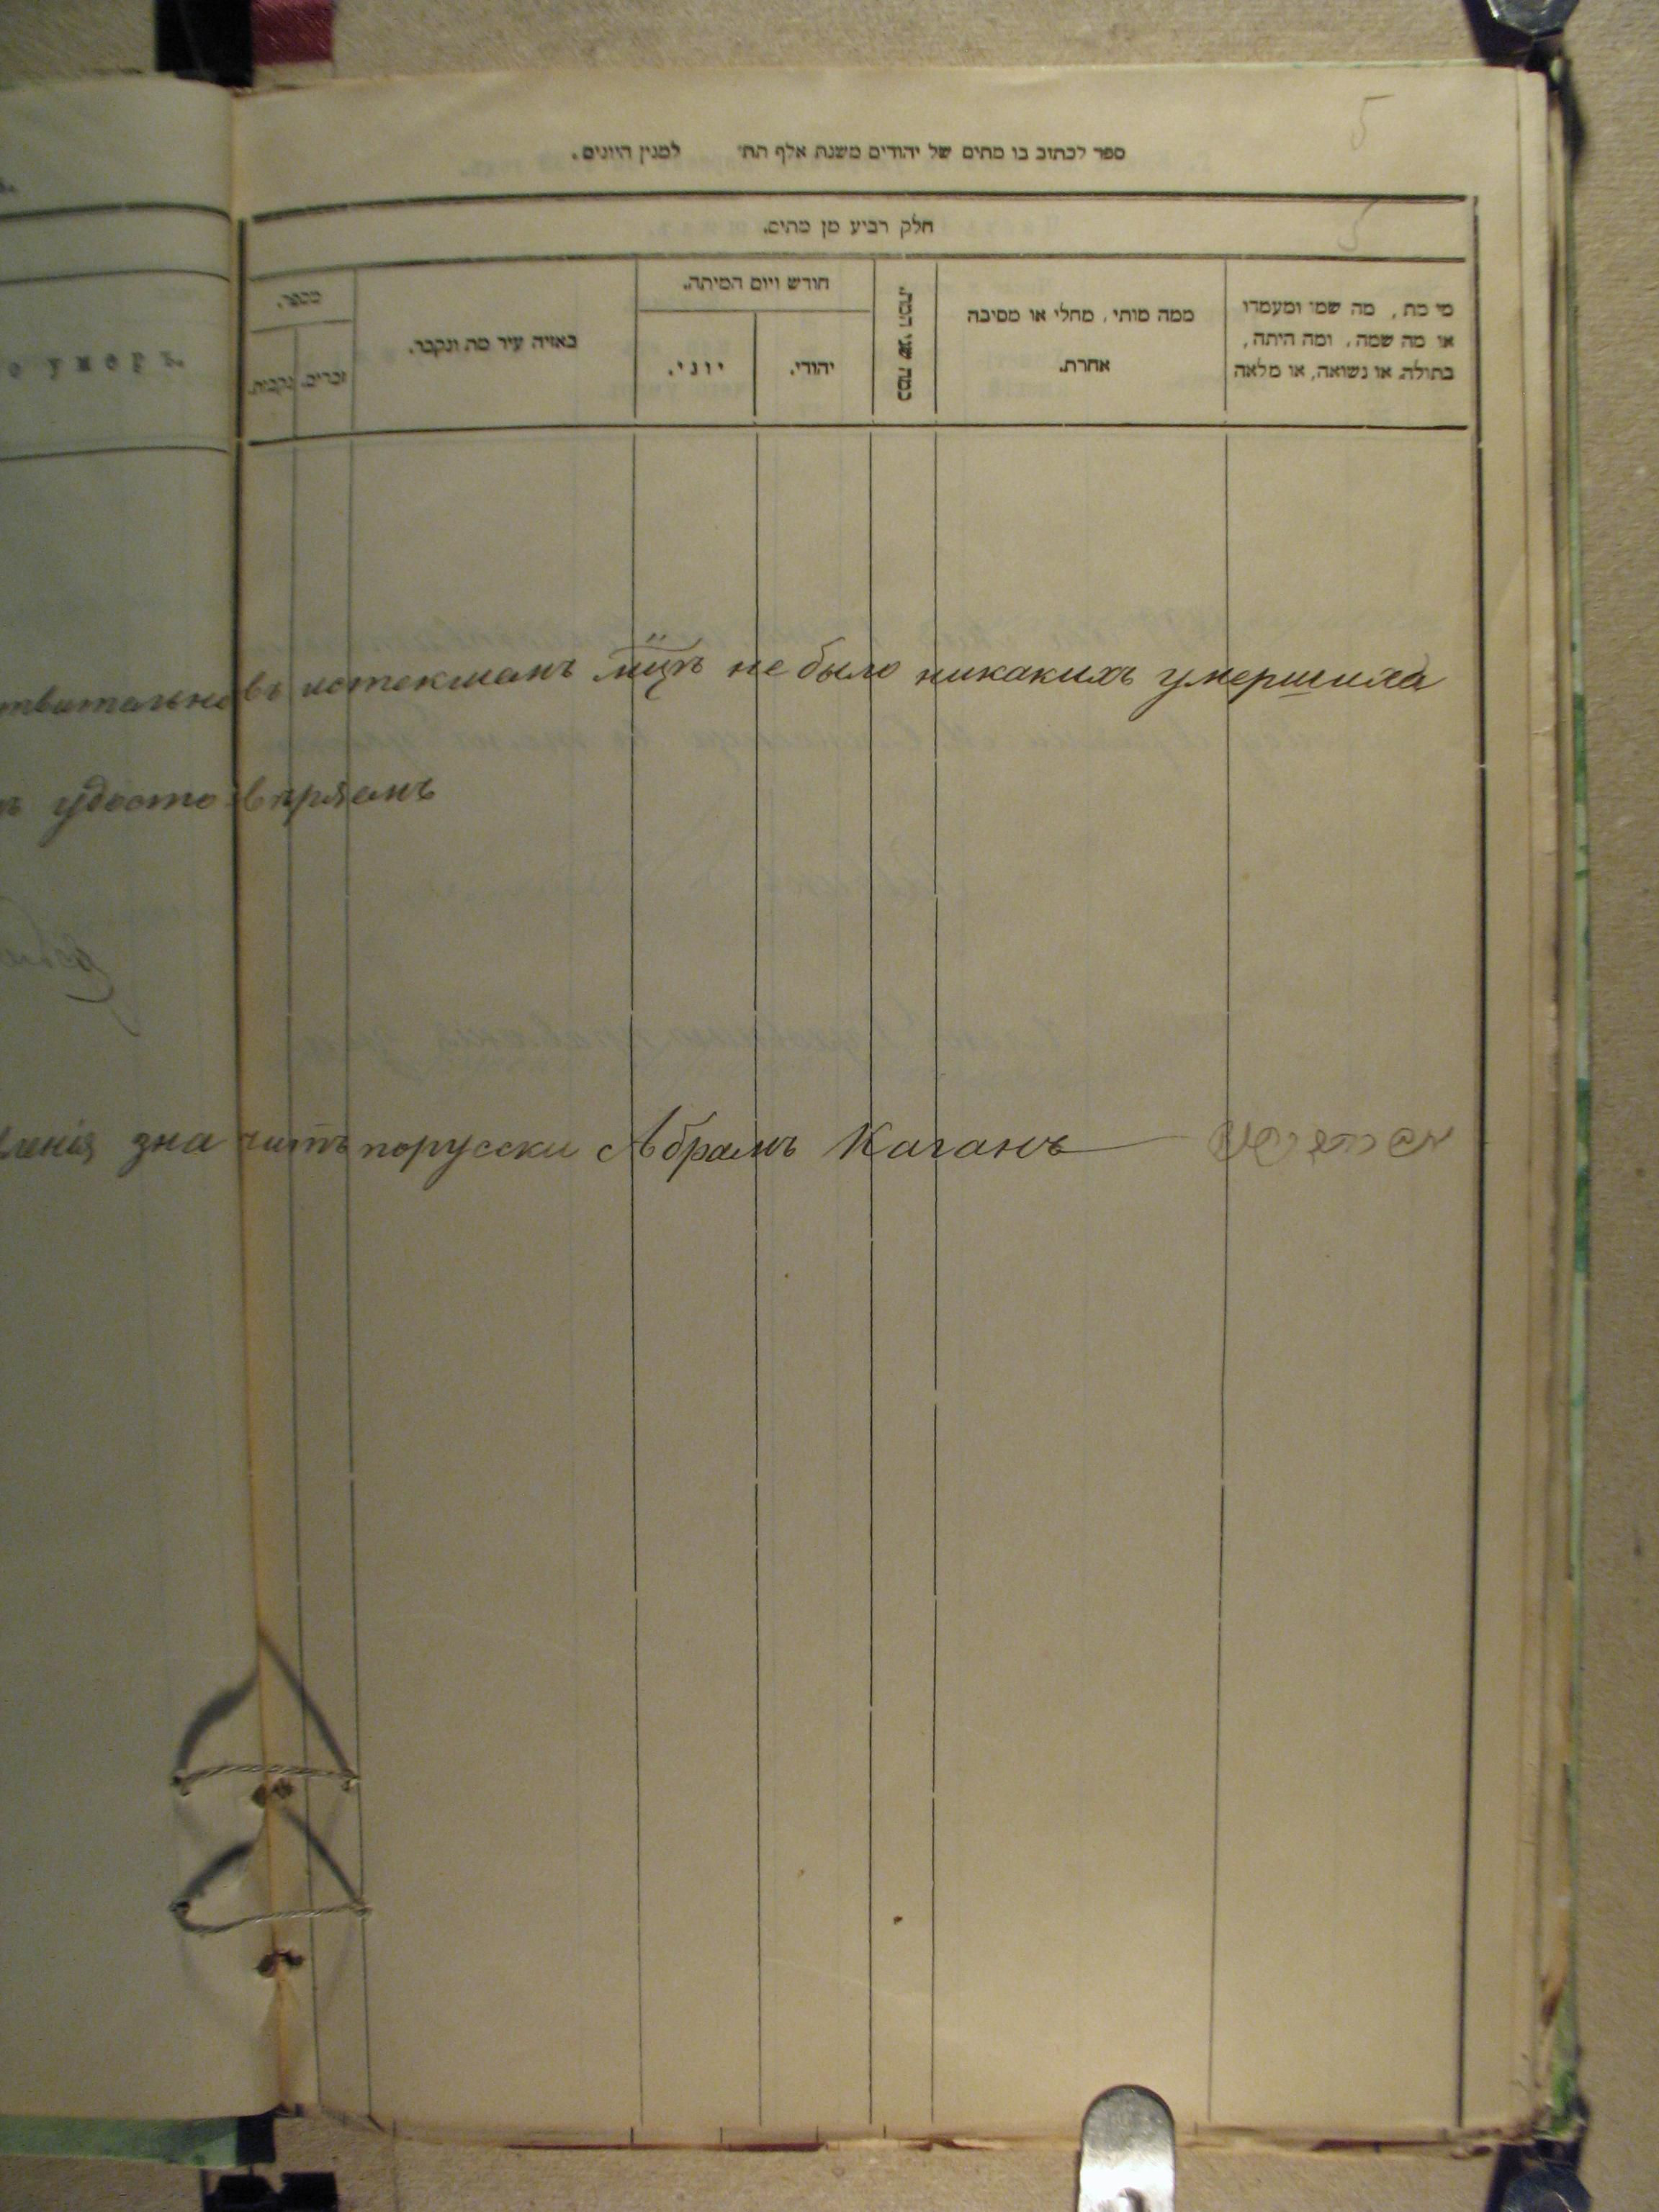 5
ספר לכתוב בו מתים של יהודים משנת אלף תת׳ למנין היונים.
חלק רביע מן מתים.
מי מת, מה שמו ומעמדו
או מה שמה, ומה היתה,
בתולה, או נשואה, או מלאה
ממה מותי, מחלי או מסיבה
אחרת.
כמה שני המת.
חודש ויום המיתה.
יהודי.
יוני.
באיזה עיר מת ונקבר.
מספר.
זכרים.
נקבות.
о умеръ.
твительно въ истекшемъ мцѣ не было никакихъ умершихъ
удостовѣряемъ
ленія значитъ порусски Абрамъ Каганъ